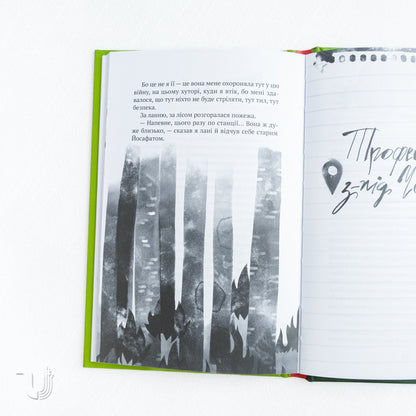 Бо це не я її — це вона мене охороняла тут у цю
війну, на цьому хуторі, куди я втік, бо мені зда-
валося, що тут ніхто не буде стріляти, тут тил, тут
безпека.
За ланню, за лісом розгоралася пожежа.
— Напевне, цього разу по станції... Вона ж ду-
же близько, — сказав я лані й відчув себе старим
Йосафатом.
з-під